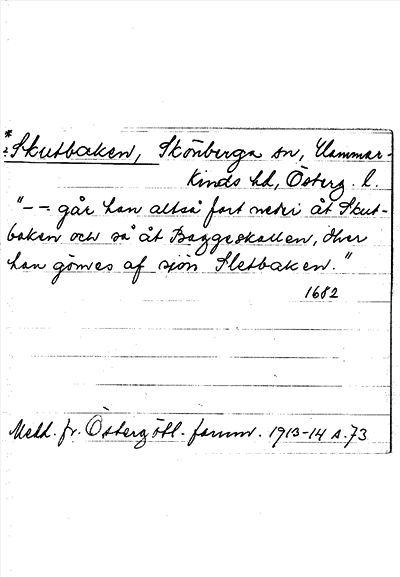 * Skutbaken, Skönberga sn, Hammar-
kinds hd, Österg. l.
"-- går han altså fort nedri åt Skut-
baken och så åt Baggeskallen, ther
han gömes af sjön Sletbaken."
1682
Medd. fr. Östergötl. fornm. 1913-14 s. 73